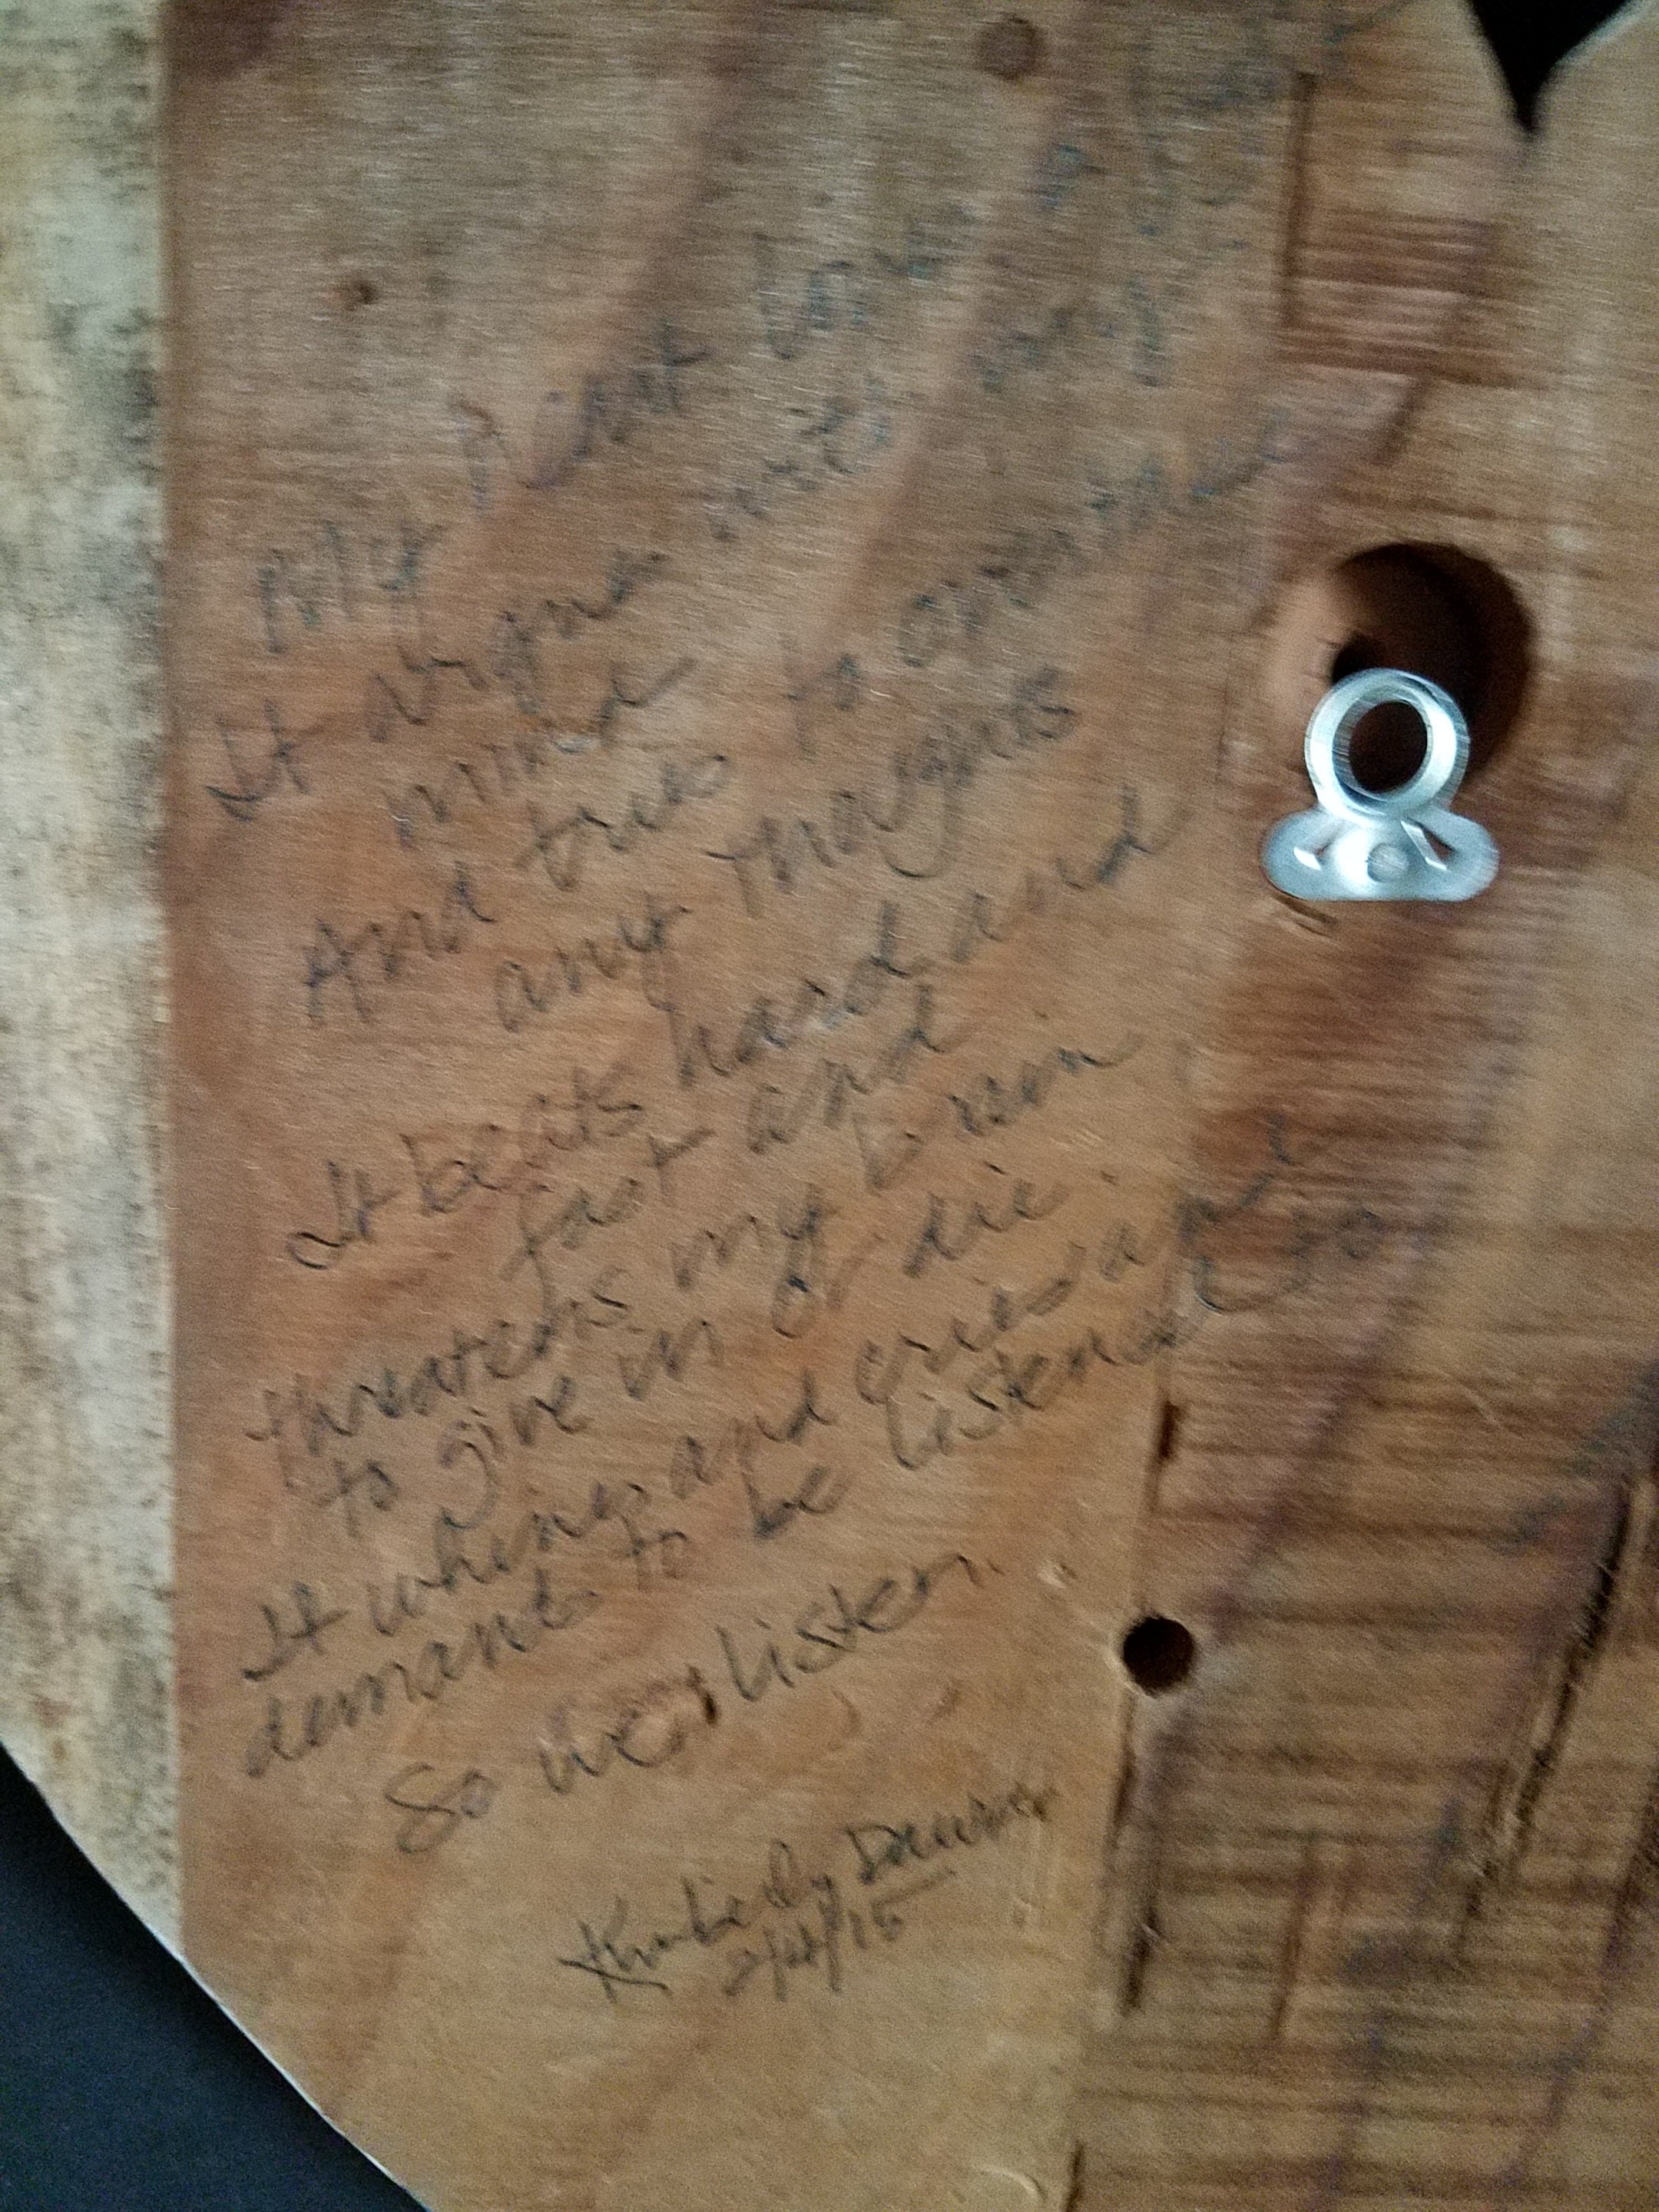 My heart
It argues with my
mind
And tries to overrule
any thoughts
It beats hard and
fast and
threatens my brain
to give in or die.
It whines and cries and
demands to be listened to
So we listen.
Kimberly
2/4/15